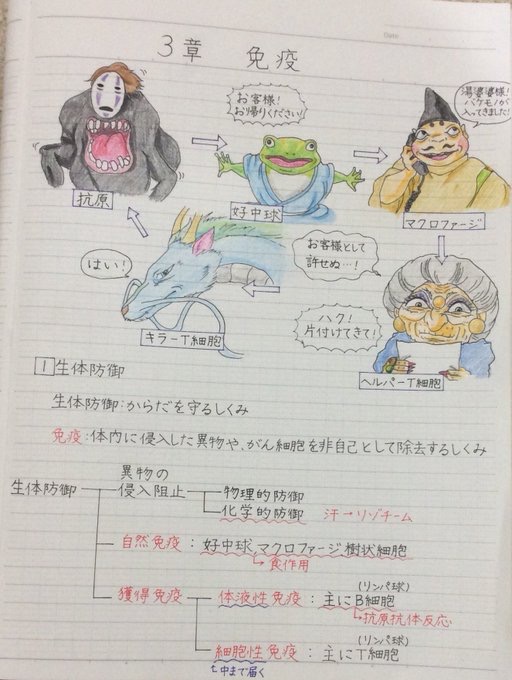 Date
3章 免疫
お客様!
お帰りください!
湯婆婆様!
バケモノが
入ってきました!
抗原
好中球
マクロファージ
はい!
お客様として
許せぬ…!
ハク!
片付けてきて!
キラーT細胞
ヘルパーT細胞
1 生体防御
生体防御:からだを守るしくみ
免疫:体内に侵入した異物や、がん細胞を非自己として除去するしくみ
異物の
生体防御 侵入阻止 物理的防御
化学的防御 汗→リゾチーム
自然免疫:好中球、マクロファージ、樹状細胞
↳食作用
(リンパ球)
獲得免疫 体液性免疫:主にB細胞
↳抗原抗体反応
(リンパ球)
細胞性免疫:主にT細胞
↑中まで届く